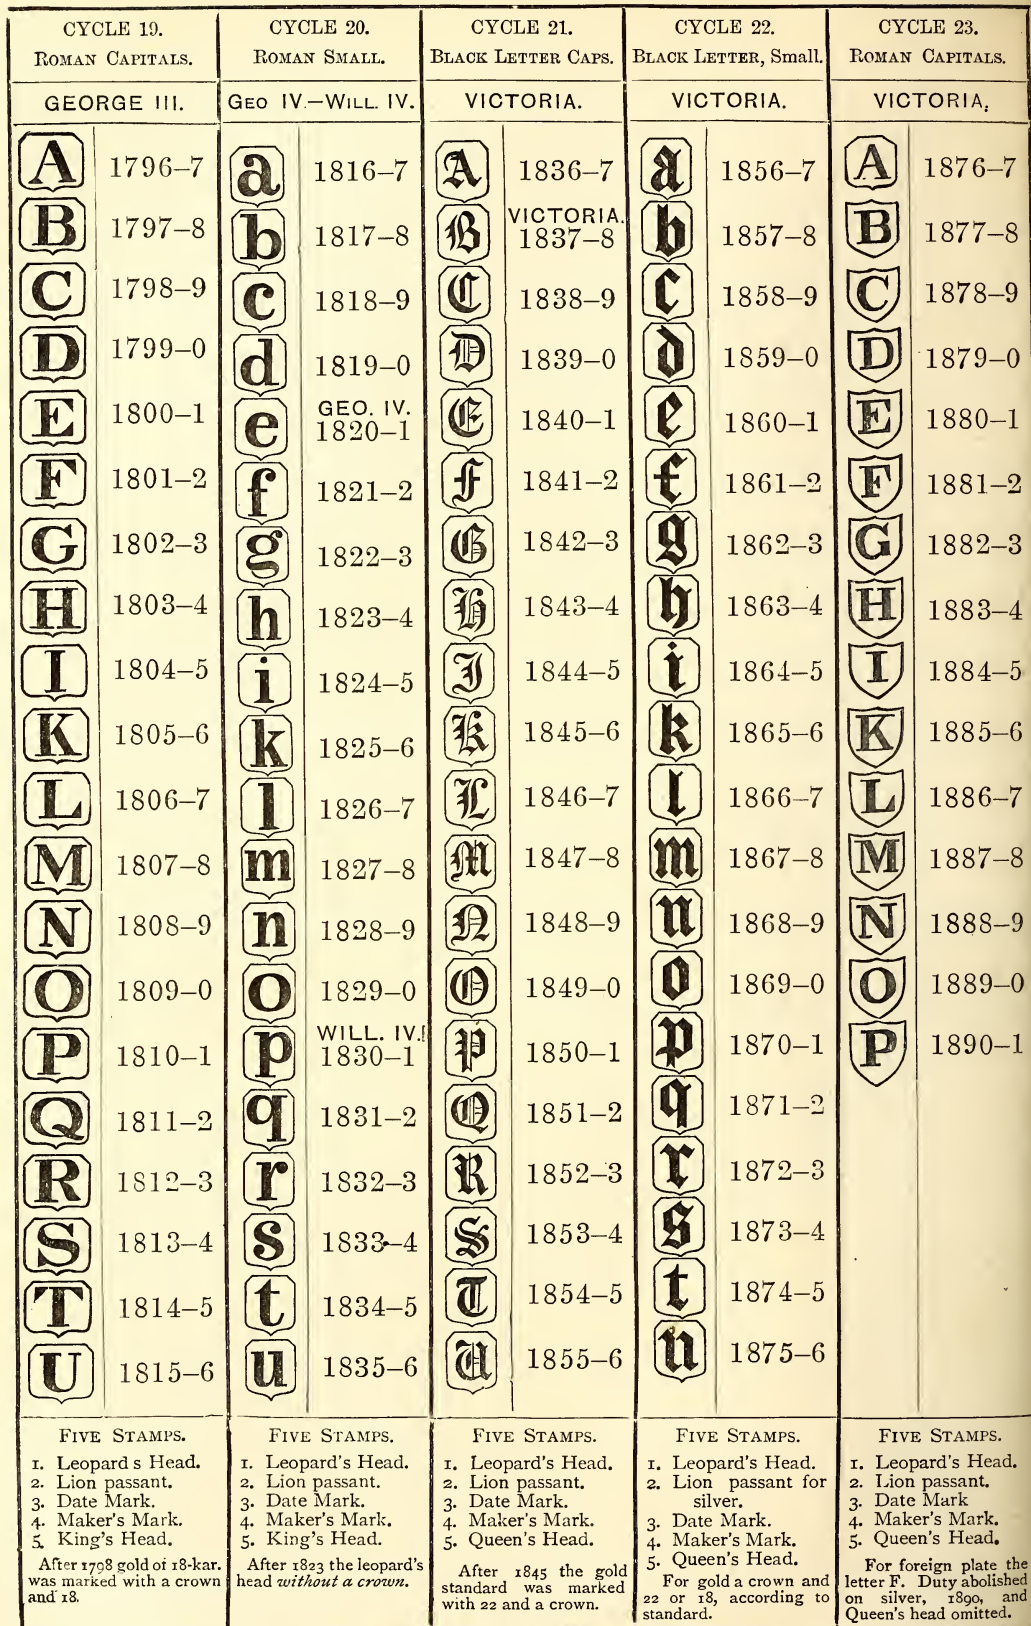 CYCLE 19.
ROMAN CAPITALS.
GEORGE III.
A 1796–7
B 1797–8
C 1798–9
D 1799–0
E 1800–1
F 1801–2
G 1802–3
H 1803–4
I 1804–5
K 1805–6
L 1806–7
M 1807–8
N 1808–9
O 1809–0
P 1810–1
Q 1811–2
R 1812–3
S 1813–4
T 1814–5
U 1815–6
FIVE STAMPS.
1. Leopard s Head.
2. Lion passant.
3. Date Mark.
4. Maker's Mark.
5. King's Head.
After 1798 gold of 18-kar.
was marked with a crown
and 18.
CYCLE 20.
ROMAN SMALL.
GEO IV.—WILL. IV.
a 1816–7
b 1817–8
c 1818–9
d 1819–0
GEO. IV.
e 1820–1
f 1821–2
g 1822–3
h 1823–4
i 1824–5
k 1825–6
l 1826–7
m 1827–8
n 1828–9
o 1829–0
WILL. IV.
p 1830–1
q 1831–2
r 1832–3
s 1833–4
t 1834–5
u 1835–6
FIVE STAMPS.
1. Leopard's Head.
2. Lion passant.
3. Date Mark.
4. Maker's Mark.
5. King's Head.
After 1823 the leopard's
head without a crown.
CYCLE 21.
BLACK LETTER CAPS.
VICTORIA.
A 1836–7
VICTORIA.
B 1837–8
C 1838–9
D 1839–0
E 1840–1
F 1841–2
G 1842–3
H 1843–4
I 1844–5
K 1845–6
L 1846–7
M 1847–8
N 1848–9
O 1849–0
P 1850–1
Q 1851–2
R 1852–3
S 1853–4
T 1854–5
U 1855–6
FIVE STAMPS.
1. Leopard's Head.
2. Lion passant.
3. Date Mark.
4. Maker's Mark.
5. Queen's Head.
After 1845 the gold
standard was marked
with 22 and a crown.
CYCLE 22.
BLACK LETTER, Small.
VICTORIA.
a 1856–7
b 1857–8
c 1858–9
d 1859–0
e 1860–1
f 1861–2
g 1862–3
h 1863–4
i 1864–5
k 1865–6
l 1866–7
m 1867–8
n 1868–9
o 1869–0
p 1870–1
q 1871–2
r 1872–3
s 1873–4
t 1874–5
u 1875–6
FIVE STAMPS.
1. Leopard's Head.
2. Lion passant for
silver.
3. Date Mark.
4. Maker's Mark.
5. Queen's Head.
For gold a crown and
22 or 18, according to
standard.
CYCLE 23.
ROMAN CAPITALS.
VICTORIA.
A 1876–7
B 1877–8
C 1878–9
D 1879–0
E 1880–1
F 1881–2
G 1882–3
H 1883–4
I 1884–5
K 1885–6
L 1886–7
M 1887–8
N 1888–9
O 1889–0
P 1890–1
FIVE STAMPS.
1. Leopard's Head.
2. Lion passant.
3. Date Mark
4. Maker's Mark.
5. Queen's Head.
For foreign plate the
letter F. Duty abolished
on silver, 1890, and
Queen's head omitted.